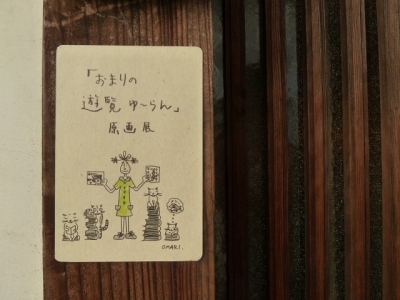 「おまりの
遊覧ゆ〜らん」
原画展
OMARI.